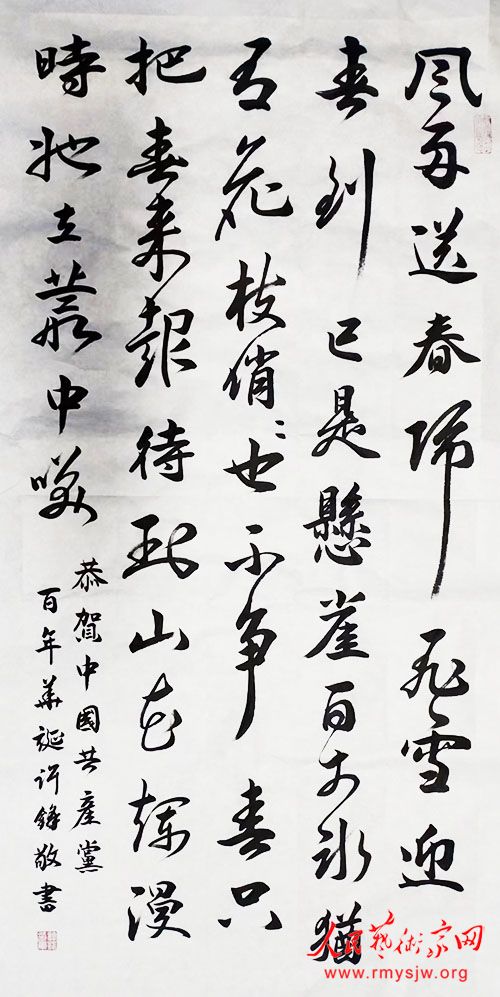 风雨送春归飛雪迎
春到已是懸崖百丈冰猶
有花枝俏〻也不争春只
把春来報待到山花烂漫
時她在叢中咲
恭賀中國共產黨
百年華誕許鋒敬書
人民藝術家网
www.rmysjw.org